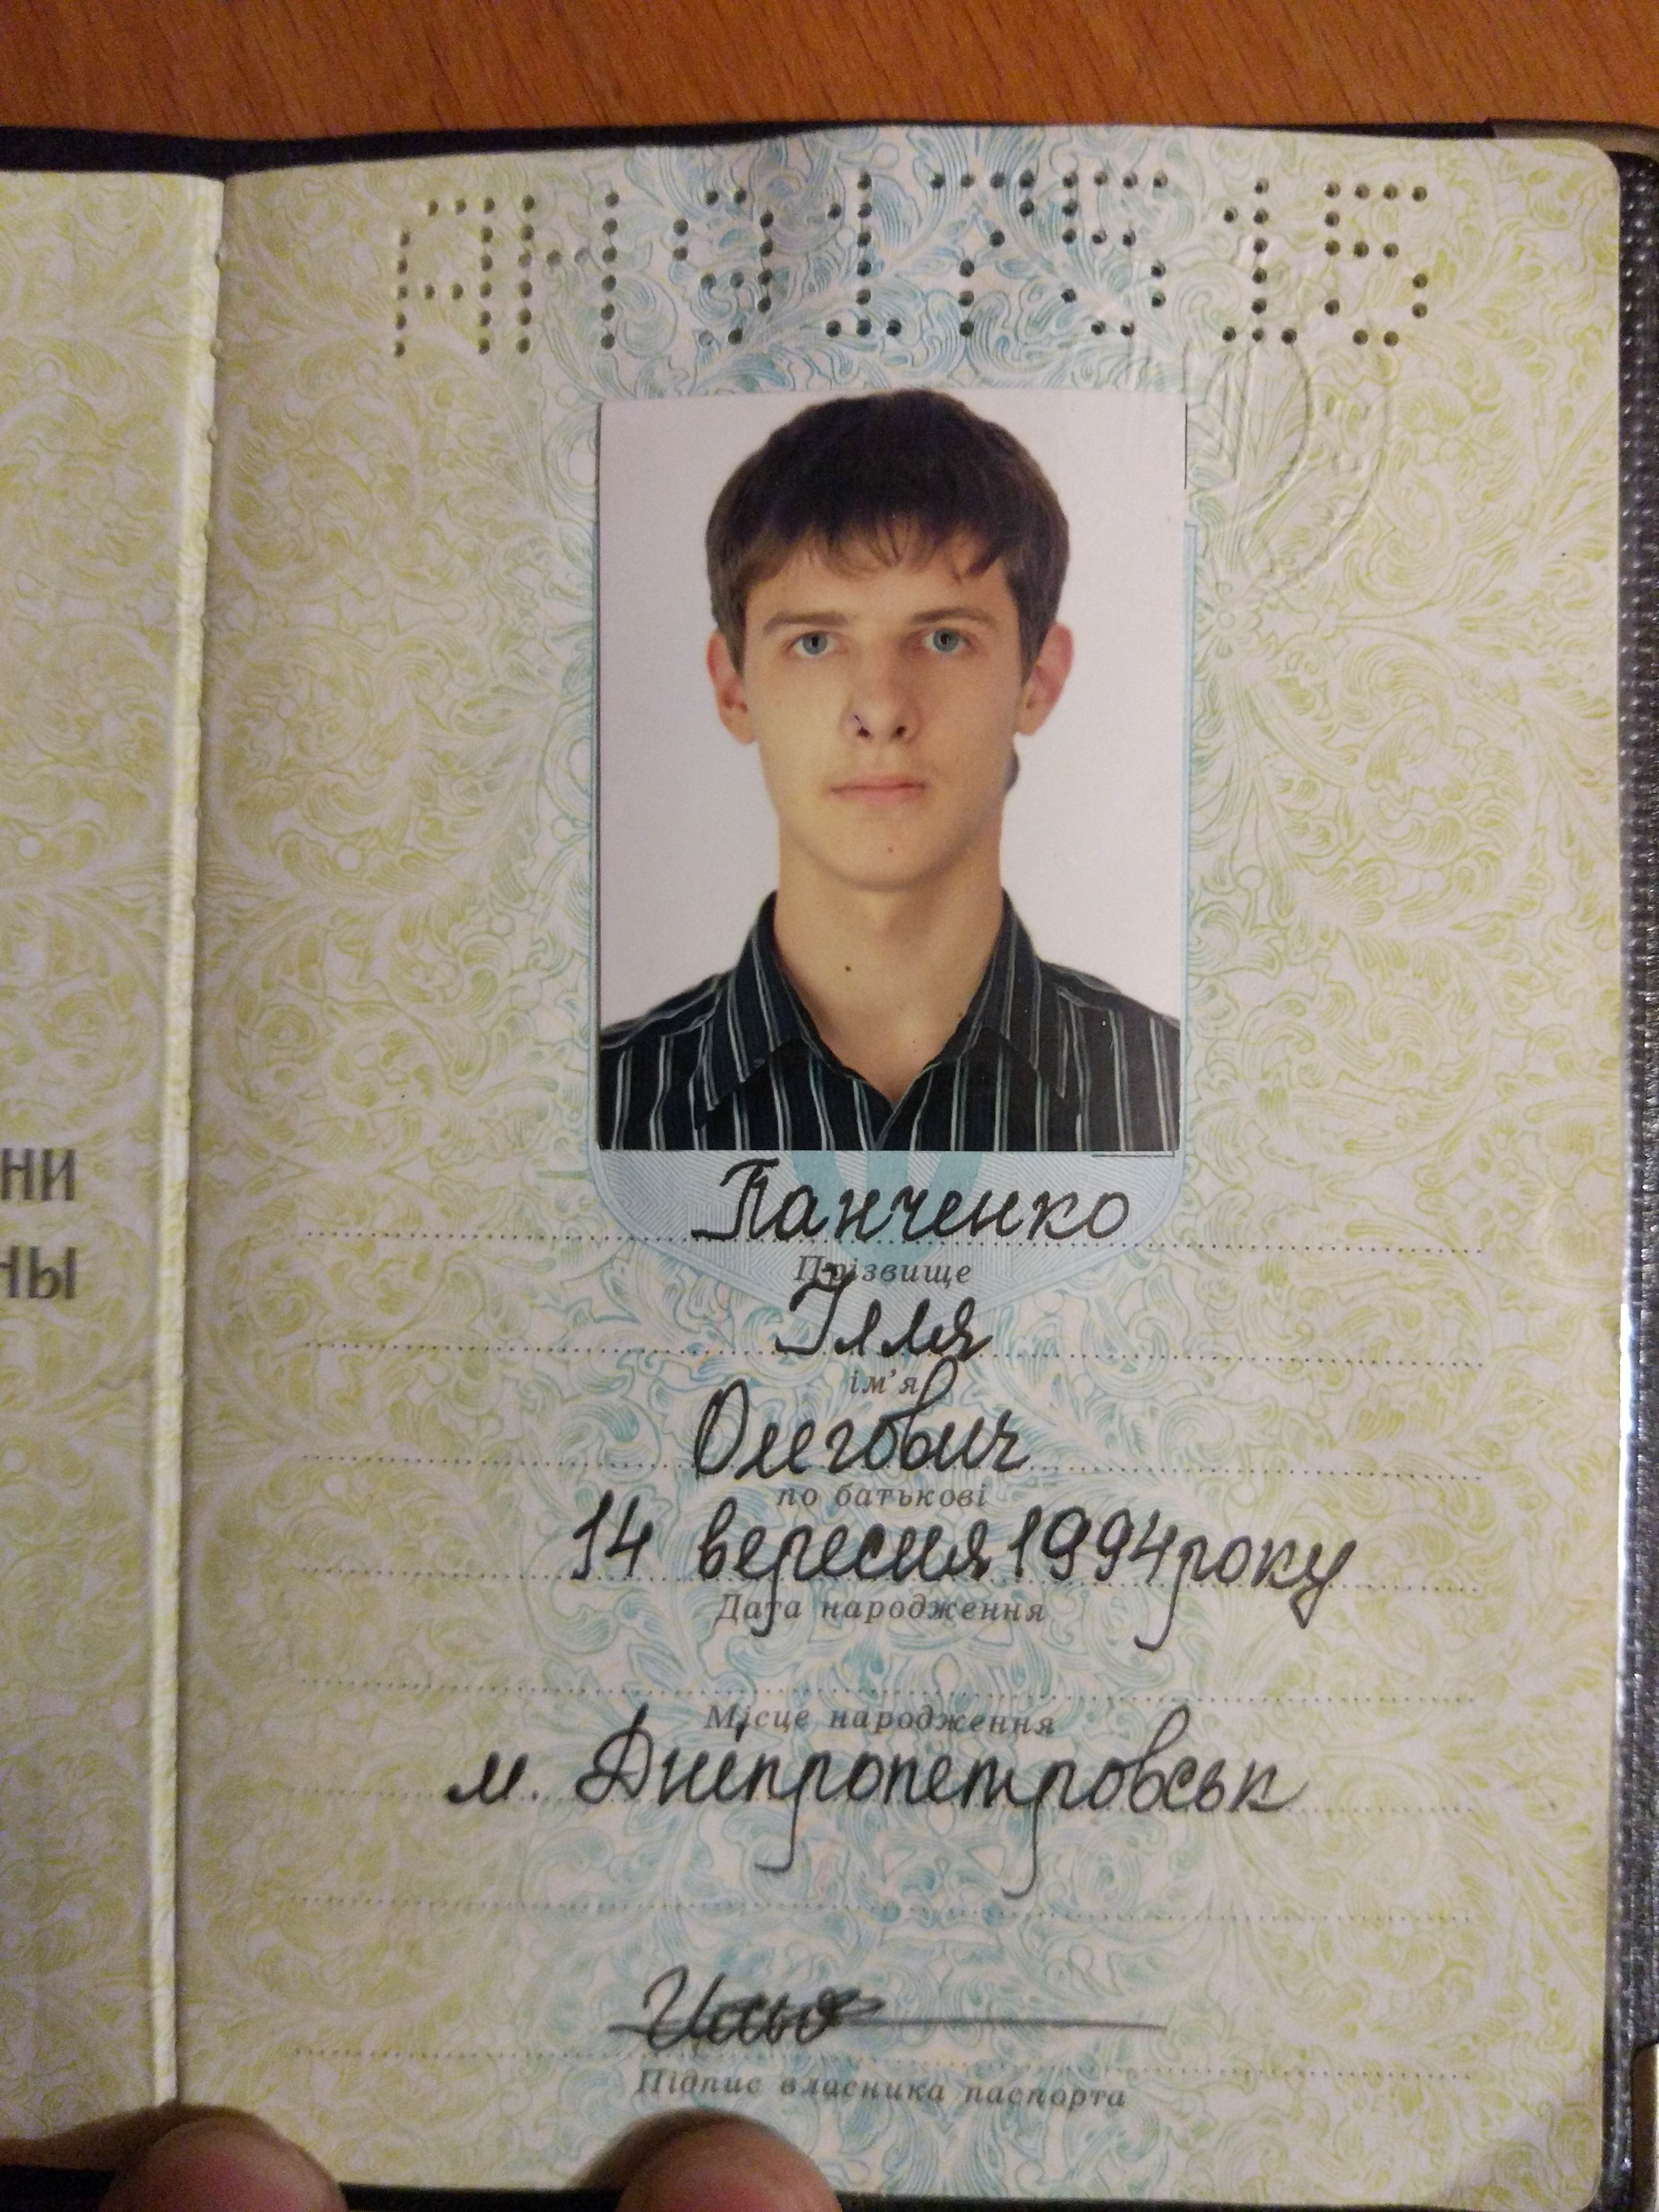 АН917515
Панченко
Прізвище
Ілля
ім'я
Олегович
по батькові
14 вересня 1994 року
Дата народження
Місце народження
м. Дніпропетровськ
Підпис власника паспорта
НИ
НЫ